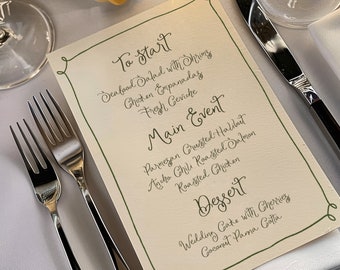 To Start
Seafood Salad with Shrimp
Chicken Empanadas
Fresh Ceviche
Main Event
Parmesan Crusted Halibut
Chile Roasted Salmon
Roasted Chicken
Dessert
Wedding Cake with Cherries
Coconut Panna Cotta